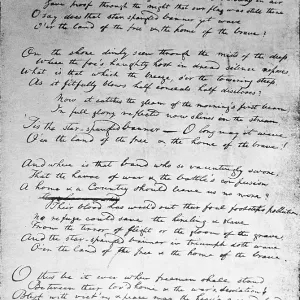 Gave proof through the night that our flag was still there
O say does that star-spangled banner yet wave
O'er the land of the free & the home of the brave?
On the shore dimly seen through the mists of the deep,
Where the foe's haughty host in dread silence reposes,
What is that which the breeze, o'er the towering steep,
As it fitfully blows, half conceals, half discloses?
Now it catches the gleam of the morning's first beam,
In full glory reflected now shines in the stream,
'Tis the star-spangled banner — O long may it wave
O'er the land of the free & the home of the brave!
And where is that band who so vauntingly swore,
That the havoc of war & the battle's confusion
A home & a Country should leave us no more?
Their blood has wash'd out their foul footsteps pollution
No refuge could save the hireling & slave
From the terror of flight or the gloom of the grave,
And the star-spangled banner in triumph doth wave
O'er the land of the free & the home of the brave.
O thus be it ever when freemen shall stand
Between their lov'd home & the war's desolation!
Blest with vict'ry & peace may the heav'n